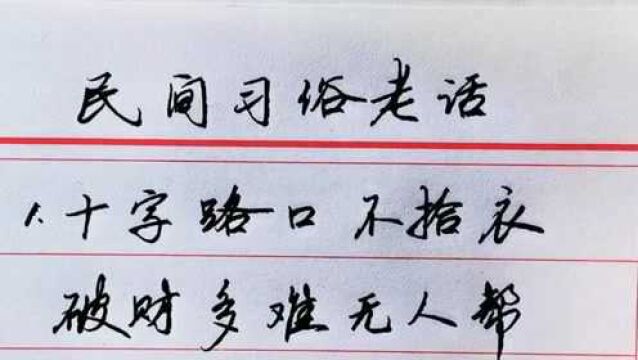 民间习俗老话
1.十字路口不拾衣
破财多难无人帮